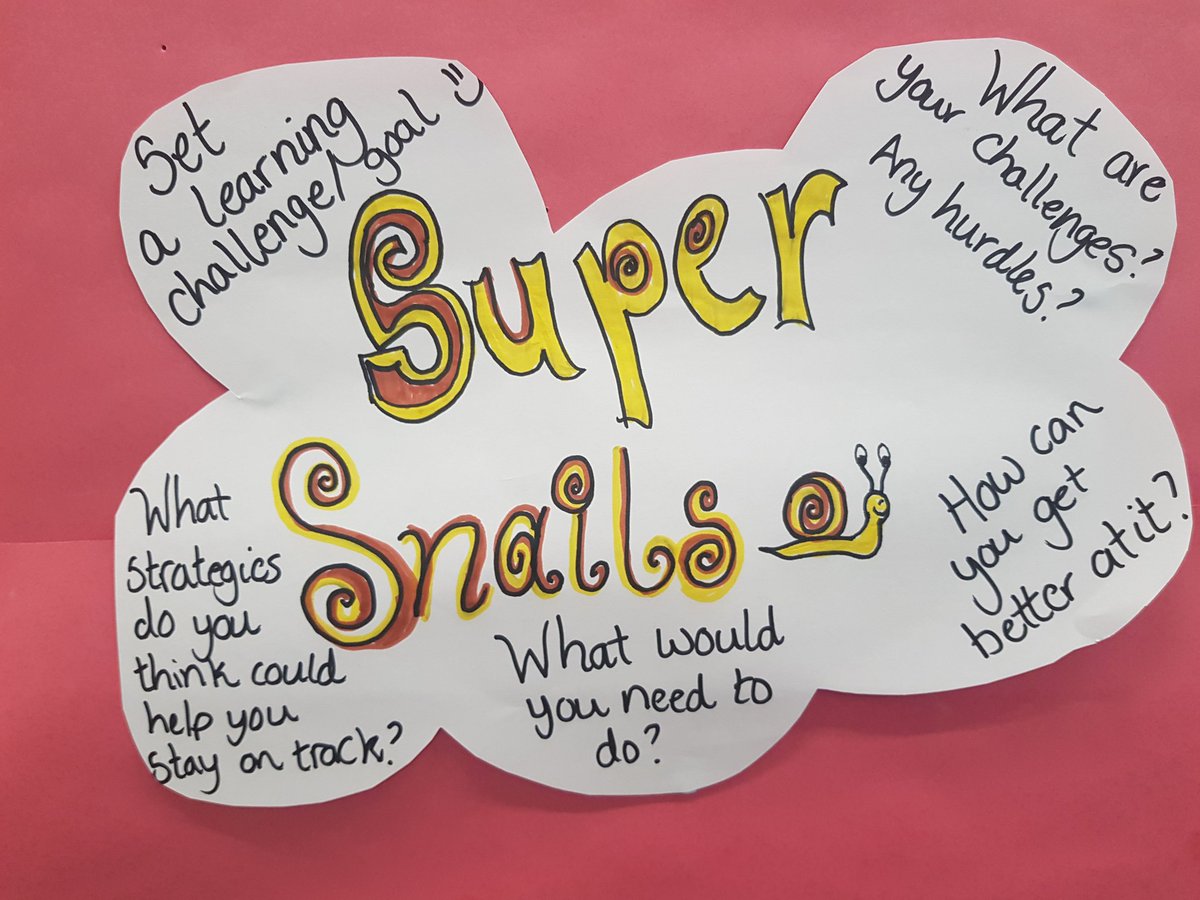 Set
a learning
challenge/goal
What are
your challenges?
Any hurdles?
Super
Snails
What
strategies
do you
think could
help you
stay on track?
What would
you need to
do?
How can
you get
better at it?